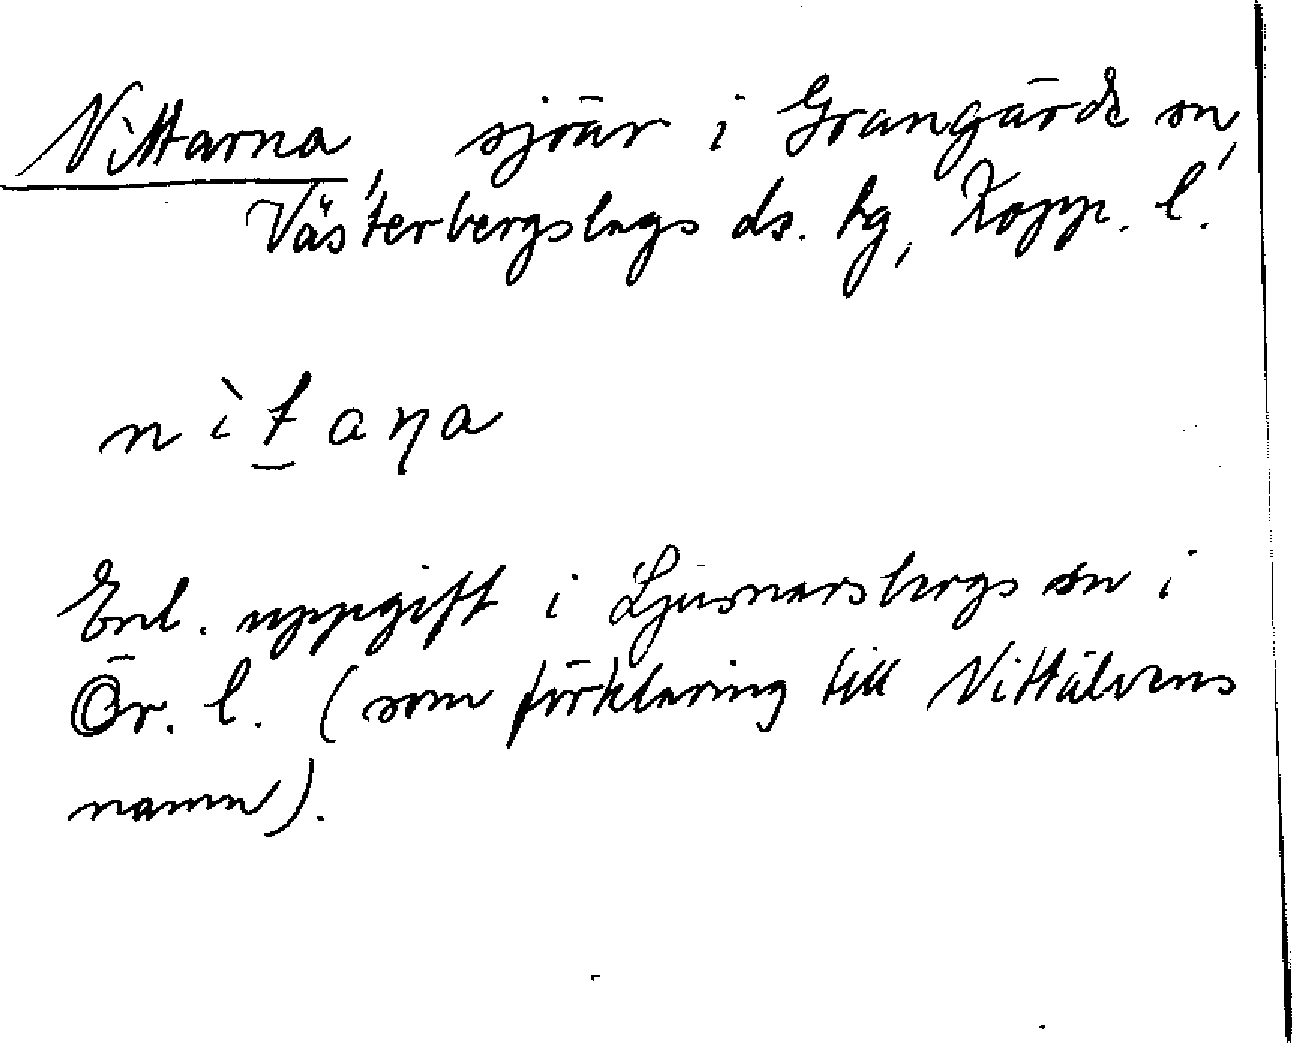 Nittarna, sjöar i Grangärde sn,
Västerbergslags ds. hg, Kopp. l.
nìt̠aɳa
Enl. uppgift i Ljusnarsbergs sn i
Ör. l. (som förklaring till Nittälvens
namn).